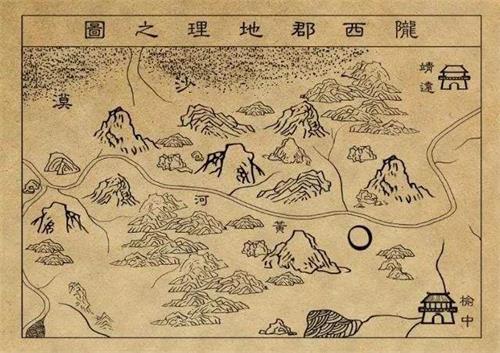 隴西郡地理之圖
靖遠
沙漠
黃河
榆中